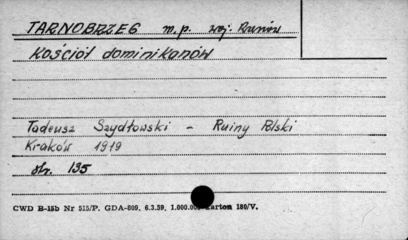 TARNOBRZEG m.p. woj. Rzeszów
Kościół dominikanów
Tadeusz Szydłowski - Ruiny Polski
Kraków 1919
str. 135
CWD B-15b Nr 515/P. GDA-809, 6.3.59, 1.000.000 karton 180/V.